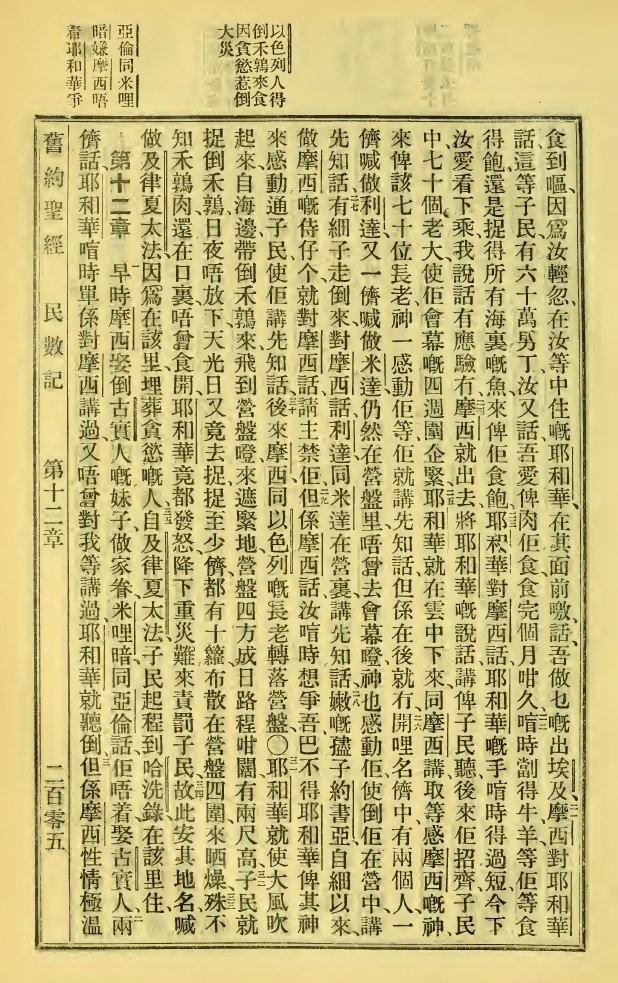 以色列人得
倒禾鶉來食
因貪慾惹倒
大災
亞倫同米哩
暗嫌摩西唔
着耶和華爭
食到嘔、因爲汝輕忽在汝等中住嘅耶和華、在其面前噭話、吾做乜嘅出埃及、摩西對耶和華
話、這等子民有六十萬男丁、汝又話、吾愛俾肉佢食、食完個月咁久、喧時劏得牛羊等佢等食
得飽、還是捉得所有海裏嘅魚來俾佢食飽、耶和華對摩西話、耶和華嘅手喧時得過短、今下
汝愛看下乘我說話有應驗有、摩西就出去、將耶和華嘅說話講俾子民聽、後來佢招齊子民
中七十個老大、使佢會幕嘅四週圍企緊、耶和華就在雲中下來、同摩西講、取等感摩西嘅神、
來俾該七十位長老、神一感動佢等、佢就講先知話、但係在後就冇開哩名儕中有兩個人、一
儕喊做利達、又一儕喊做米達、仍然在營盤里、唔曾去會幕、噔神也感動佢、使倒佢在營中講
先知話、有細子走倒來對摩西話、利達同米達在營裏講先知話、嫩嘅孻子約書亞、自細以來、
做摩西嘅侍仔个、就對摩西話、請主禁佢、但係摩西話、汝喧時想爭吾、巴不得耶和華俾其神
來感動通子民、使佢講先知話、後來摩西同以色列嘅長老轉落營盤、〇耶和華就使大風吹
起來、自海邊帶倒禾鶉來、飛到營盤噔、來遮緊地、營盤四方成日路程咁闊、有兩尺高、子民就
捉倒禾鶉、日夜唔放下、天光日又竟去捉、捉至少儕都有十籮、布散在營盤四圍來晒燥、殊不
知禾鶉肉還在口裏、唔曾食開、耶和華竟都發怒、降下重災難來責罰子民、故此安其地名喊
做及律夏太法、因爲在該里埋葬貪慾嘅人、自及律夏太法、子民起程到哈洗錄、在該里住、
第十二章 早時摩西娶倒古實人嘅妹子做家眷、米哩暗同亞倫話、佢唔着娶古實人、兩
儕話、耶和華喧時單係對摩西講過、又唔曾對我等講過、耶和華就聽倒、但係摩西性情極溫
舊約聖經 民數記 第十二章 二百零五